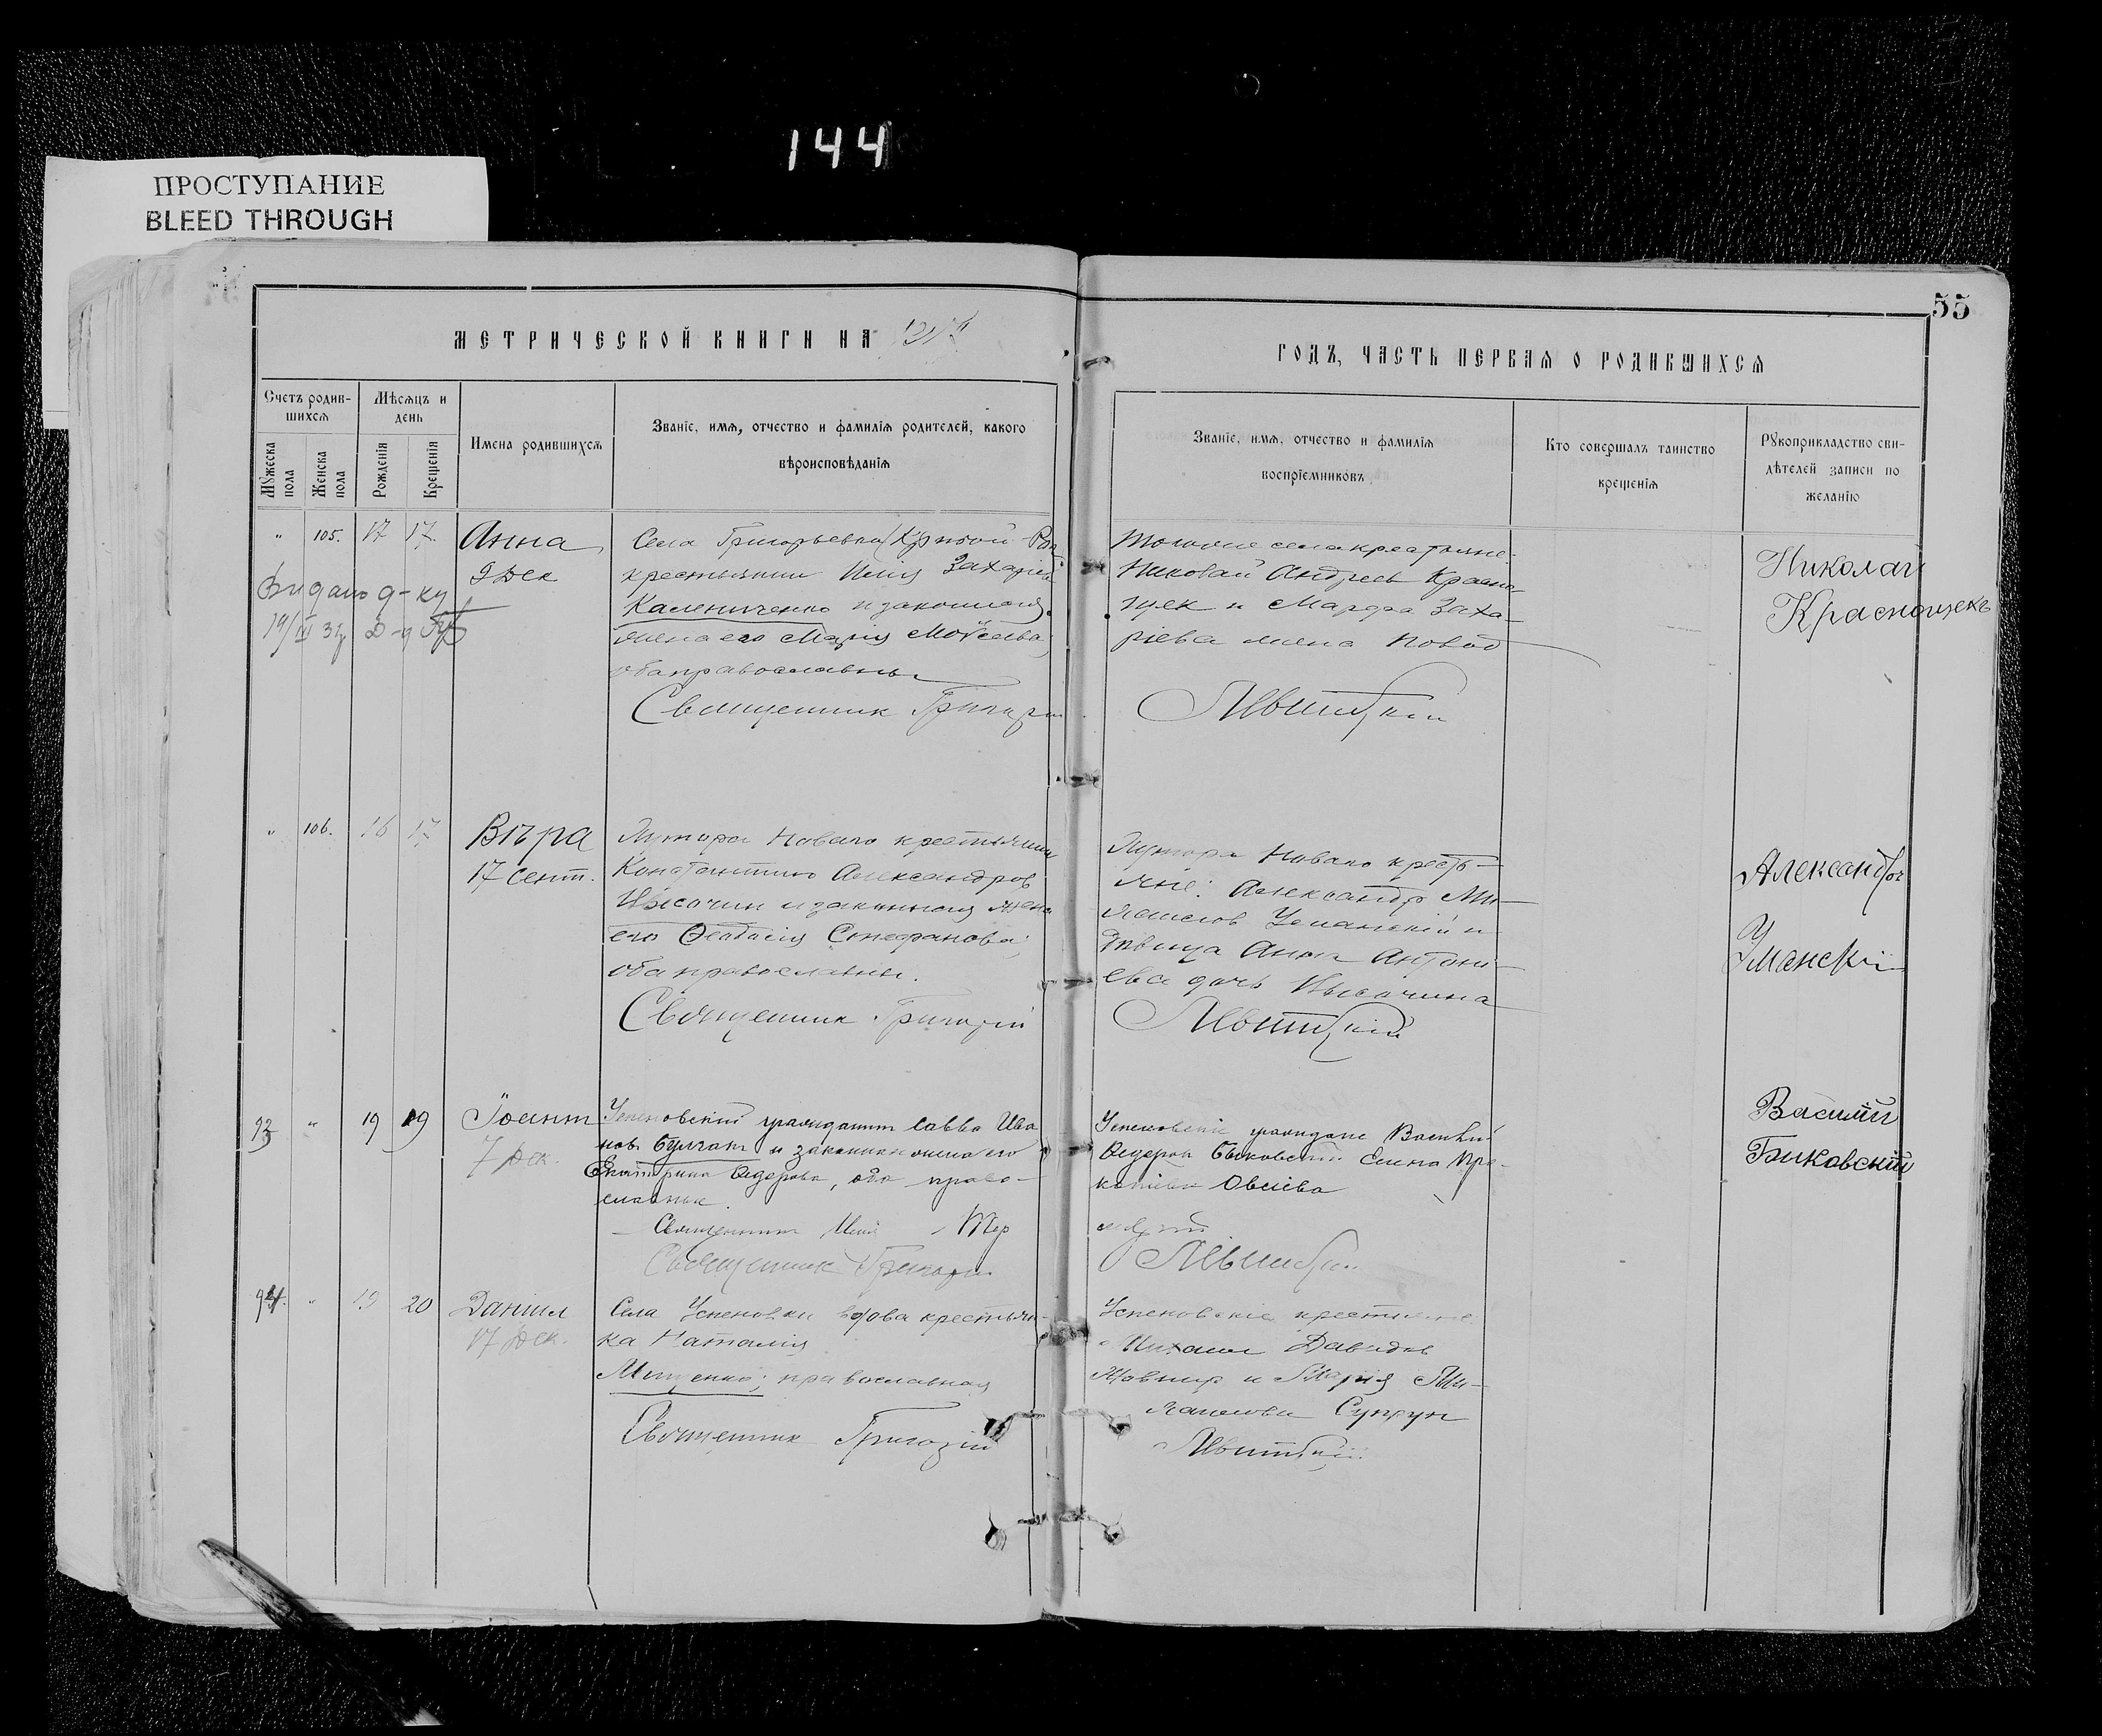 144
ПРОСТУПАНИЕ
BLEED THROUGH
55
МЕТРИЧЕСКОЙ КНИГИ НА
ГОДЪ, ЧАСТЬ ПЕРВАЯ О РОДИВШИХСЯ
Счетъ родив-
шихся
Мужеска
пола
Женска
пола
Мѣсяцъ и
день
Рожденія
Крещенія
Имена родившихся
Званіе, имя, отчество и фамилія родителей, какого
вѣроисповѣданія
Званіе, имя, отчество и фамилія
воспріемниковъ
Кто совершалъ таинство
крещенія
Рукоприкладство сви-
дѣтелей записи по
желанію
" 105. 17 17.
Анна
9 Дек
Села Григорьевки
крестьянин Илія Захаріев
Калениченко и законная
жена его Марія Моѵсеева,
оба православны
Священник Григорій
того же села крестьяне:
Николай Андреев Красно-
щек и Марфа Заха-
ріева жена
Лѣвитскій
Николай
Краснощекъ
" 106. 16 17
Вѣра
17 Сент.
Хутора Новаго крестьянин
Константин Александров
и законная жена
его Феодосія Стефанова,
оба православны.
Священник Григорій
Хутора Новаго кресть-
яне: Александр Ми-
хаилов Уманскій и
дѣвица Анна Антоні-
ева дочь
Лѣвитскій
Александръ
Уманскій
93 " 19 19
Іоанн
7 Дек.
Успеновскій гражданин Савва Ива
нов Булгак и законная жена его
Екатерина Ѳедорова, оба право-
славные.
Священник
Священник Григорій
Успеновскіе граждане Василій
Ѳедоров Быковскій Елена Про-
копіева Овсіева
Лѣвитскій
Василій
Биковскій
94. " 19 20
Даніил
17 Дек.
Села Успеновки вдова крестьян-
ка Наталія
Мищенко; православная
Священник Григорій
Успеновскіе крестьяне
Михаил Давидов
Жовнир и Марія Ми-
хаилова Супрун
Лѣвитскій